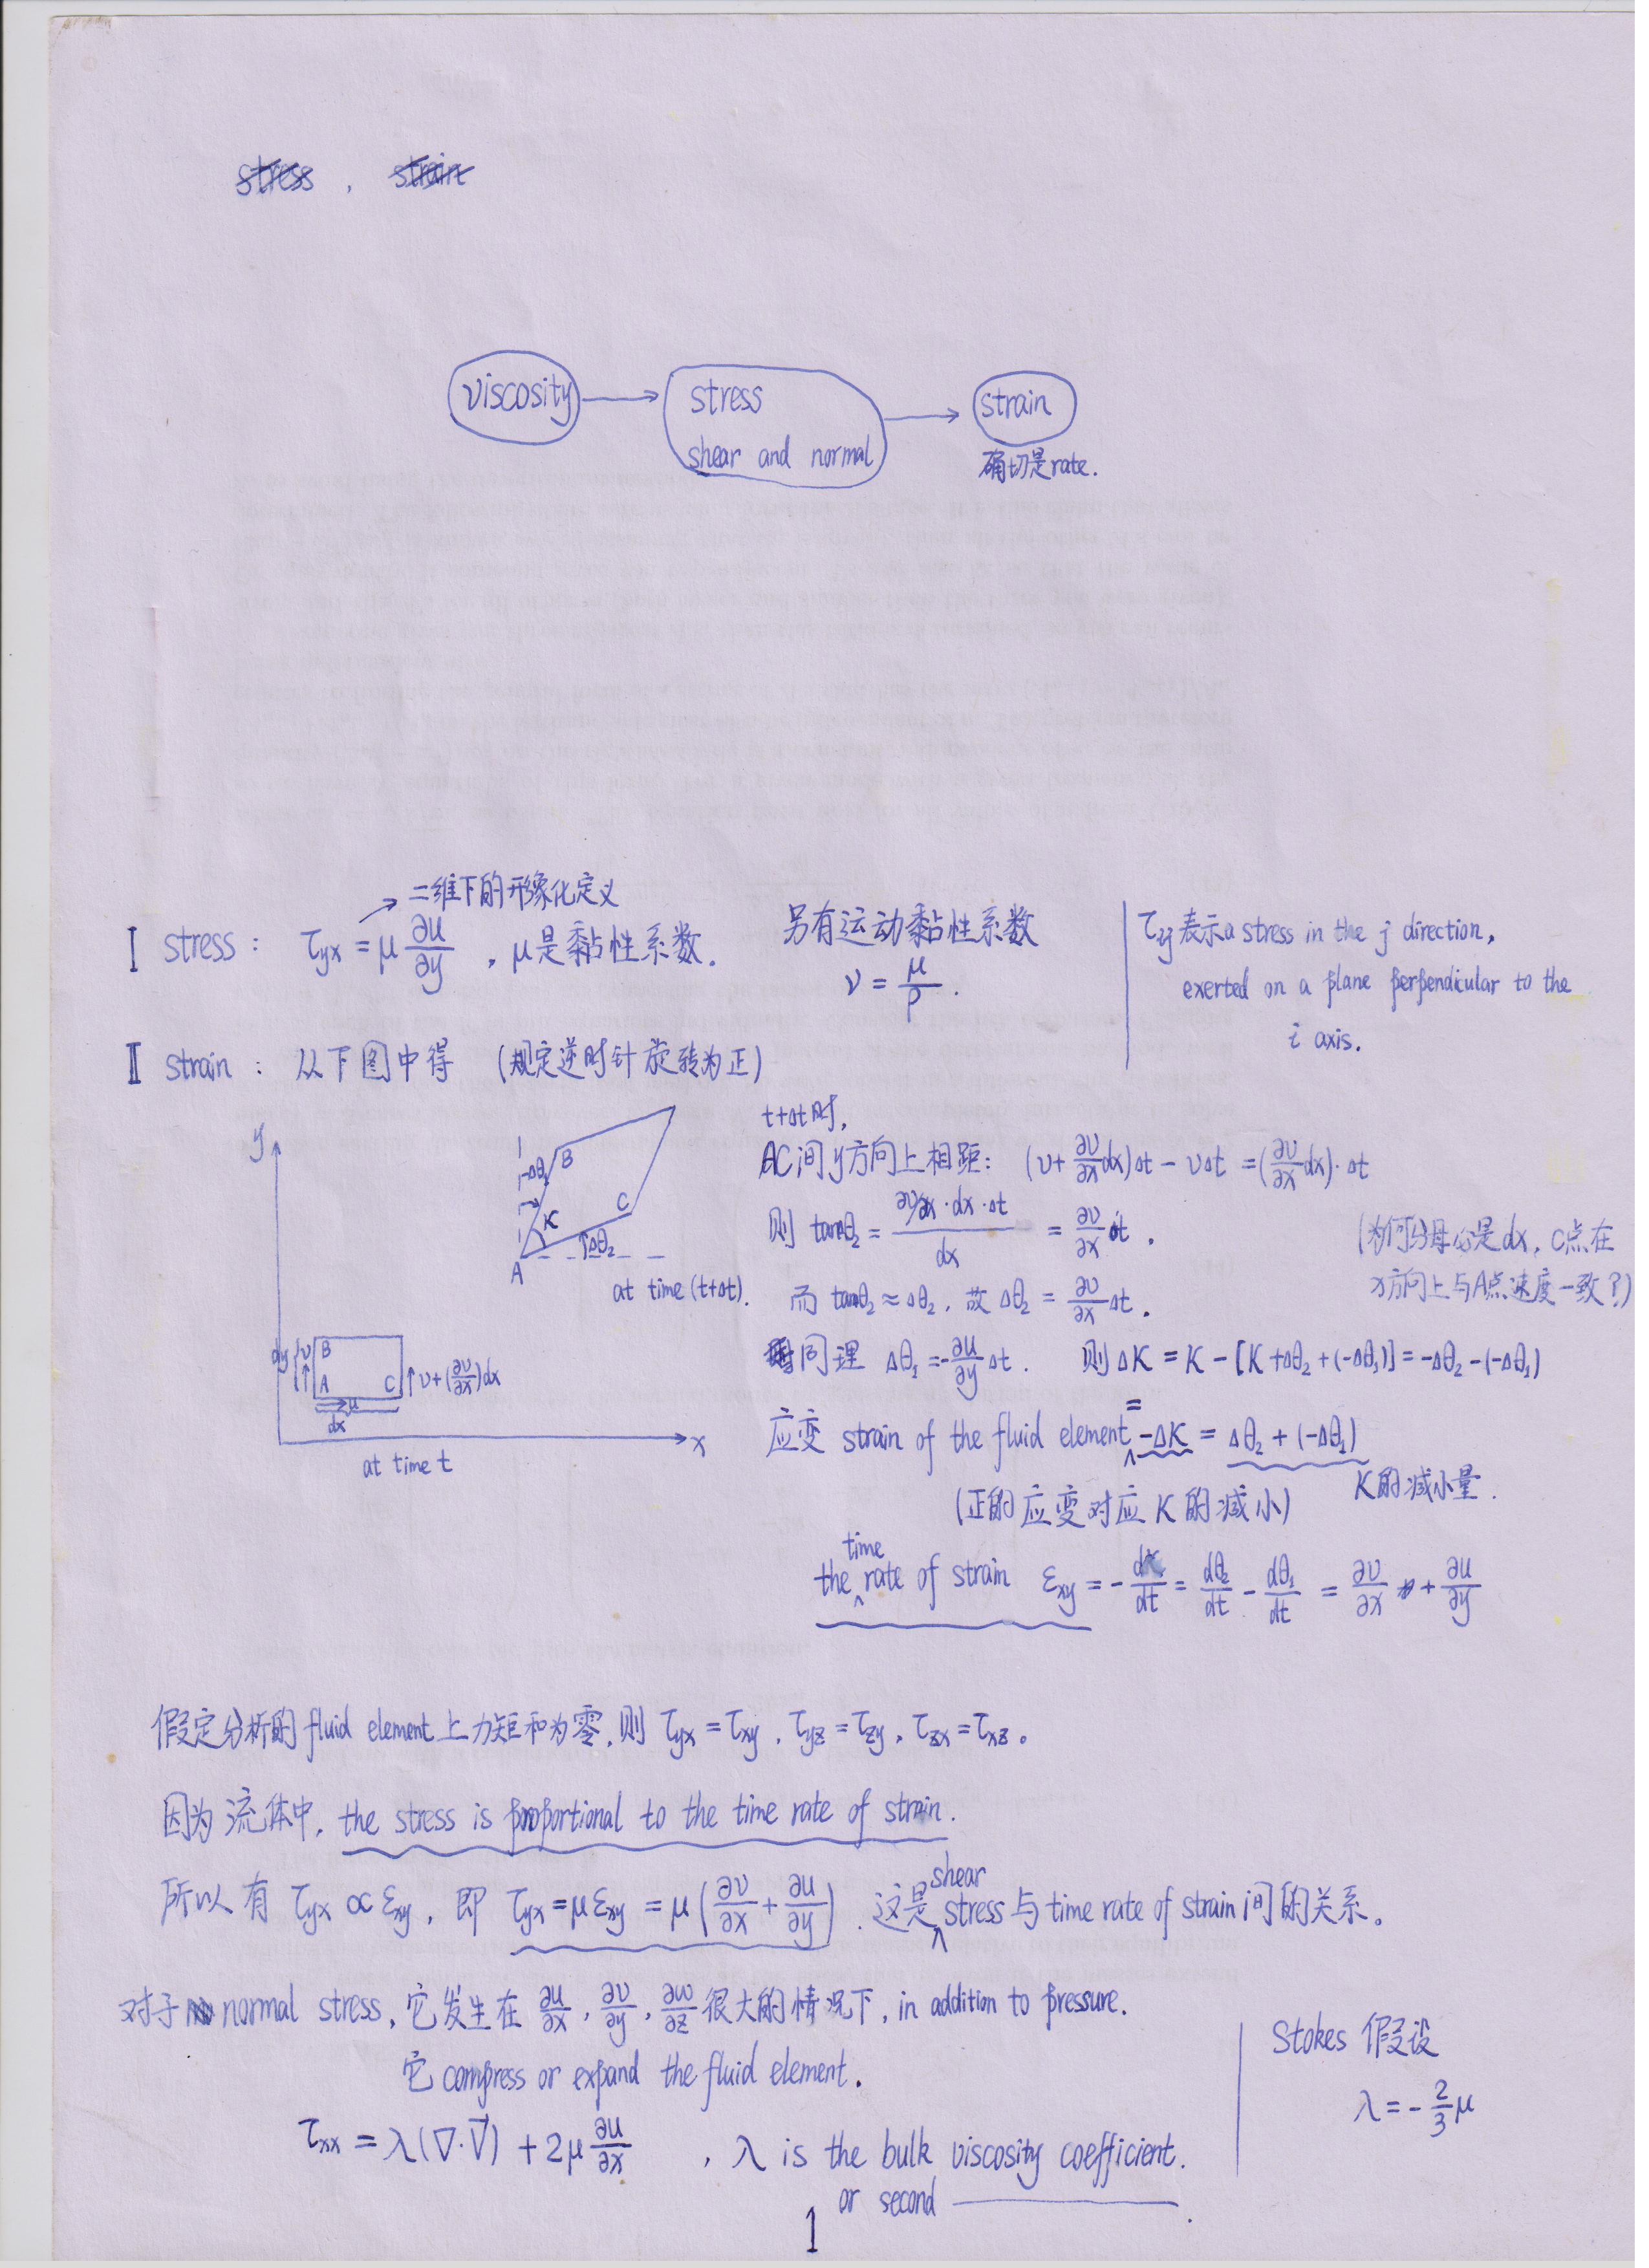 stress , strain
viscosity → stress → strain
shear and normal
确切是rate.
二维下的形象化定义
I stress: τyx = μ ∂u/∂y , μ是黏性系数.
另有运动黏性系数
ν = μ/ρ .
τij 表示 a stress in the j direction,
exerted on a plane perpendicular to the
i axis.
II strain: 以下图中得 (规定逆时针旋转为正)
y
-Δθ1 B
K C
A Δθ2
at time (t+Δt).
dy v B
A C v+(∂v/∂x)dx
u
dx
x
at time t
t+Δt时,
AC间y方向上相距: (v+∂v/∂x dx)Δt - vΔt = (∂v/∂x dx)·Δt
则 tanθ2 = (∂v/∂x·dx·Δt)/dx = ∂v/∂x Δt .
(为何分母必是dx, C点在
x方向上与A点速度一致?)
而 tanθ2 ≈ Δθ2, 故 Δθ2 = ∂v/∂x Δt .
同理 Δθ1 = -∂u/∂y Δt . 则 ΔK = K - [K+Δθ2+(-Δθ1)] = -Δθ2-(-Δθ1)
应变 strain of the fluid element = -ΔK = Δθ2 + (-Δθ1)
K的减小量.
(正的应变对应K的减小)
the time rate of strain εxy = -dK/dt = dθ2/dt - dθ1/dt = ∂v/∂x + ∂u/∂y
假定分析的 fluid element 上力矩和为零, 则 τyx = τxy , τyz = τzy , τzx = τxz 。
因为流体中, the stress is proportional to the time rate of strain.
所以有 τyx ∝ εxy , 即 τyx = μεxy = μ(∂v/∂x + ∂u/∂y) . 这是 shear stress 与 time rate of strain 间的关系。
对于 normal stress, 它发生在 ∂u/∂x , ∂v/∂y , ∂w/∂z 很大的情况下, in addition to pressure.
它 compress or expand the fluid element.
τxx = λ(∇·V⃗) + 2μ ∂u/∂x , λ is the bulk viscosity coefficient.
or second ———.
Stokes 假设
λ = -2/3 μ
1